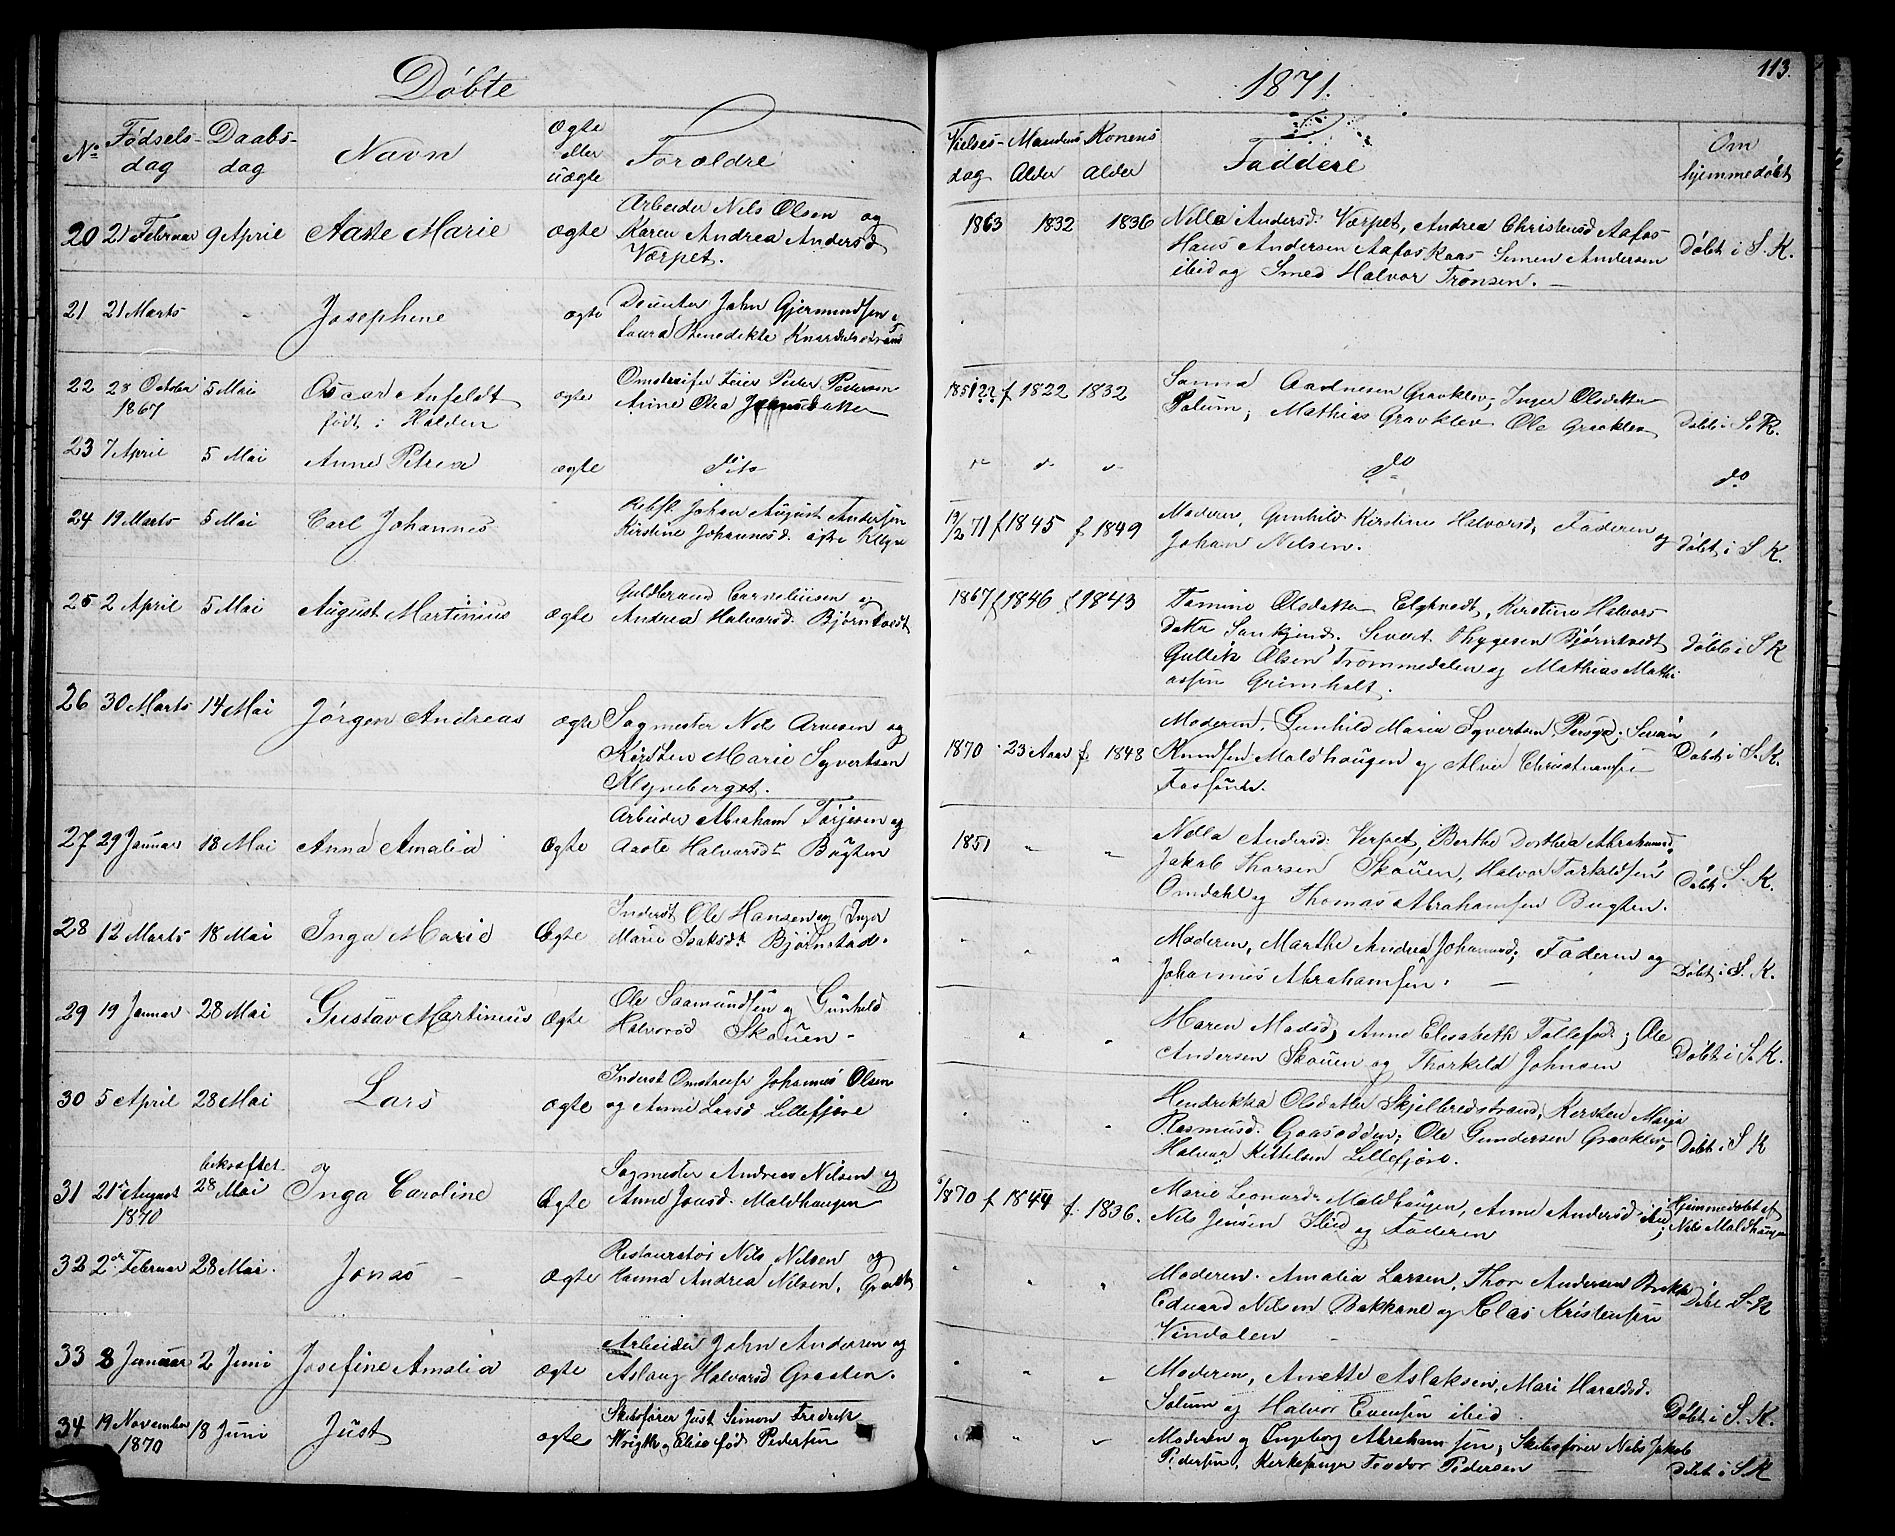 Døbte
1871.
113.
No Fødsels- dag Daabs- dag Navn Ægte eller uægte Forældre Vielses- dag Mandens Alder Konens Alder Faddere Om hjemmedøbt
20 21 Februar 9 April Aaste Marie Ægte
Arbeider Nils Olsen og
Karen Andrea Andersd
Værpet.
1863 1832 1836
Nella Andersd: Værpet, Andrea Christensd Aafos
Hans Andersen Aafos Simen Andersen
ibid og Smed Halvor Tronsen. —
Døbt i S. K.
21 21 Marts - Josephine ægte
John Gjermundsen
Laura Benedikte
22 28 October 5 Mai Oscar Anfeldt ægte
1867
født i Halden
Omstreifer Peder Pedersen
Anne Olea
1851 f 1822 1832
Sanna Aadnesen Gravklev, Inger Olsdatter
Solum, Mathias Gravklev Ole Gravklev
Døbt i S. K.
23 7 April 5 Mai Anne Petrea ægte
dito
do
do
24 19 Marts 5 Mai Carl Johannes
Johan August Andersen
Kirstine Johannesd.
19/2 71 f 1845 f 1849
Moderen, Gunhild Kirstine Halvorsd, Faderen og
Johan Nilsen.
Døbt i S. K.
25 2 April 5 Mai August Martinius Ægte
Guldbrand Corneliusen og
Andrea Halvorsd. Bjørntvedt
1867 f 1846 f 1843
Tomine Olsdatter Elghvedt, Kirstine Halvors
datter Sivert Thygesen Bjørntvedt
Gullik Olsen Trommedalen og Mathias Mathi
assen Grimholt.
Døbt i S. K
26 30 Marts 14 Mai Jørgen Andreas Ægte
Sagmester Nils Arnesen og
Kirsten Marie Syvertsen
Klyneberget.
1870 23 Aar f. 1848
Moderen, Gunhild Maria Syvertsen
Knudsen Maldhaugen og Christiansen
Døbt i S. K.
27 29 Januar 18 Mai Anna Amalia Ægte
Arbeider Abraham Torjesen og
Aaste Halvorsdr Bugten
1851
Nella Andersd. Verpet, Berthe Dorthea Abrahamsd,
Jakob Thorsen Skouen, Halvor Torkildsen
Omdahl og Thomas Abrahamsen Bugten.
Døbt i S. K.
28 12 Marts 18 Mai Inga Marie Ægte
Inderst Ole Hansen og Inger
Marie Isaksdr Bjørnstad.
Moderen, Marthe Andrea Johannesd; Faderen og
Johannes Abrahamsen. —
Døbt i S. K.
29 19 Januar 28 Mai Gustav Martinius Ægte
Ole Saamundsen og Gunhild
Halvorsd Skouen -
Maren Madsd, Anne Elisabeth Tollefsd.; Ole
Andersen Skouen og Thorkild Johnsen
Døbt i S. K.
30 5 April 28 Mai Lars Ægte
Inderst Omstreifer Johannes Olsen
og Anne Larsd Lillefjære
Hendrikka Olsdatter Skjelbredstrand, Kersten Maria
Rasmusd. Gaasodden; Ole Gundersen Gravklev,
Halvor Kittelsen Lillefjære.
Døbt i S. K
31 21de August bekræftet 28 Mai Inga Caroline Ægte
1870
Sagmester Andreas Nilsen og
Anne Jonsd. Maldhaugen
1870 f 1844 f. 1836.
Marie Leonardsdr Maldhaugen, Anne Andersd ibid,
Nils Jensen Ibid og Faderen
Hjemmedøbt af
Nils Maldhaugen
32 2den Februar 28 Mai. Jonas - Ægte
Nils Nilsen og
Hanna Andrea Nilsen,
Moderen. Amalia Larsen, Thor Andersen
Eduard Nilsen Bakkane og Claus Kristensen
Vindalen -
33 8 Januar 2 Juni Josefine Amalia Ægte
Arbeider John Andersen og
Aslaug Halvorsd Graaten.
Moderen, Anette Aslaksen, Mari Haraldsd.
Solum og Halvor Evensen ibid.
Døbt i S. K.
34 19 November 18 Juni Just ægte
1870
Skibsfører Just Simon Fredrik
Wrigth og Elise fød Pedersen
Moderen og Engeborg Abrahamsen, Skibsfører Nils Jakob
Pedersen, Kirkesanger Teodor Pedersen —
Døbt i S K